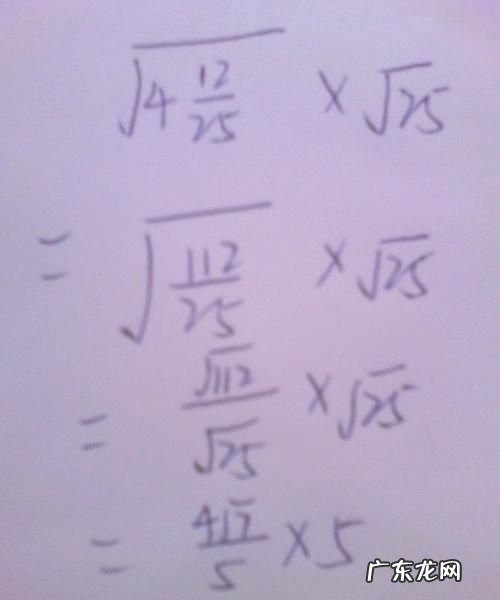 √(4 12/25) × √25
= √(112/25) × √25
= √112/√25 × √25
= 4√7/5 × 5
广东龙网